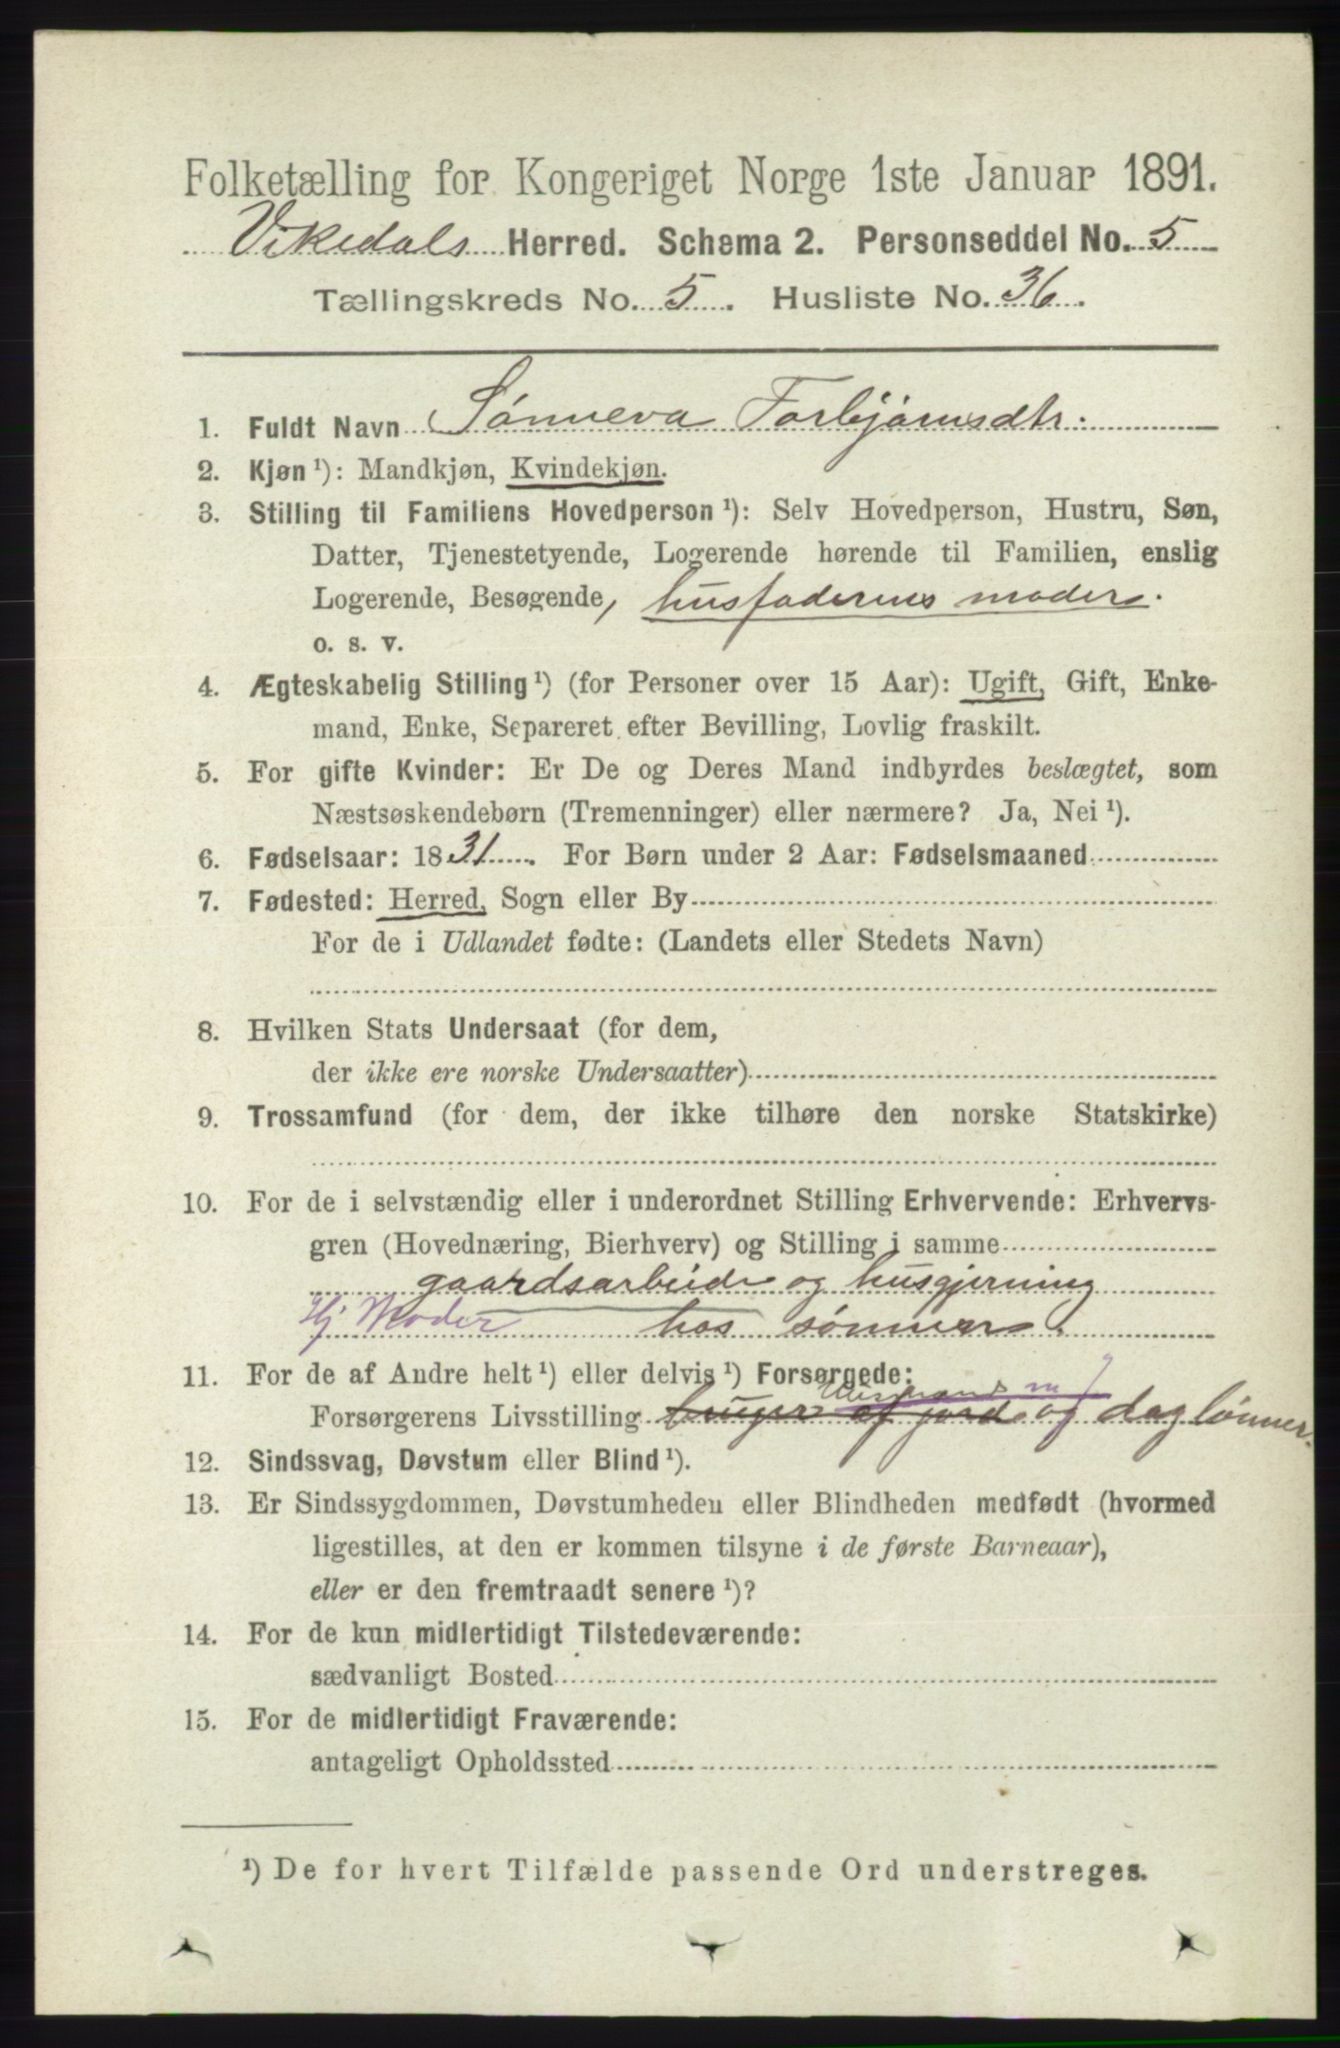 Folketælling for Kongeriget Norge 1ste Januar 1891.
Vikedals Herred. Schema 2. Personseddel No. 5
Tællingskreds No. 5. Husliste No. 36.
1. Fuldt Navn Sønneva Torbjørnsdtr.
2. Kjøn ¹): Mandkjøn, Kvindekjøn.
3. Stilling til Familiens Hovedperson ¹): Selv Hovedperson, Hustru, Søn,
Datter, Tjenestetyende, Logerende hørende til Familien, enslig
Logerende, Besøgende, husfaderens moder.
o. s. v.
4. Ægteskabelig Stilling ¹) (for Personer over 15 Aar): Ugift, Gift, Enke-
mand, Enke, Separeret efter Bevilling, Lovlig fraskilt.
5. For gifte Kvinder: Er De og Deres Mand indbyrdes beslægtet, som
Næstsøskendebørn (Tremenninger) eller nærmere? Ja, Nei ¹).
6. Fødselsaar: 1831. For Børn under 2 Aar: Fødselsmaaned
7. Fødested: Herred, Sogn eller By
For de i Udlandet fødte: (Landets eller Stedets Navn)
8. Hvilken Stats Undersaat (for dem,
der ikke ere norske Undersaatter)
9. Trossamfund (for dem, der ikke tilhøre den norske Statskirke)
10. For de i selvstændig eller i underordnet Stilling Erhvervende: Erhvervs-
gren (Hovednæring, Bierhverv) og Stilling i samme
gaardsarbeide og husgjerning
Hj Moder hos sønnen.
11. For de af Andre helt ¹) eller delvis ¹) Forsørgede:
Forsørgerens Livsstilling bruger af jord og daglønner.
12. Sindssvag, Døvstum eller Blind ¹).
13. Er Sindssygdommen, Døvstumheden eller Blindheden medfødt (hvormed
ligestilles, at den er kommen tilsyne i de første Barneaar),
eller er den fremtraadt senere ¹)?
14. For de kun midlertidigt Tilstedeværende:
sædvanligt Bosted
15. For de midlertidigt Fraværende:
antageligt Opholdssted
¹) De for hvert Tilfælde passende Ord understreges.